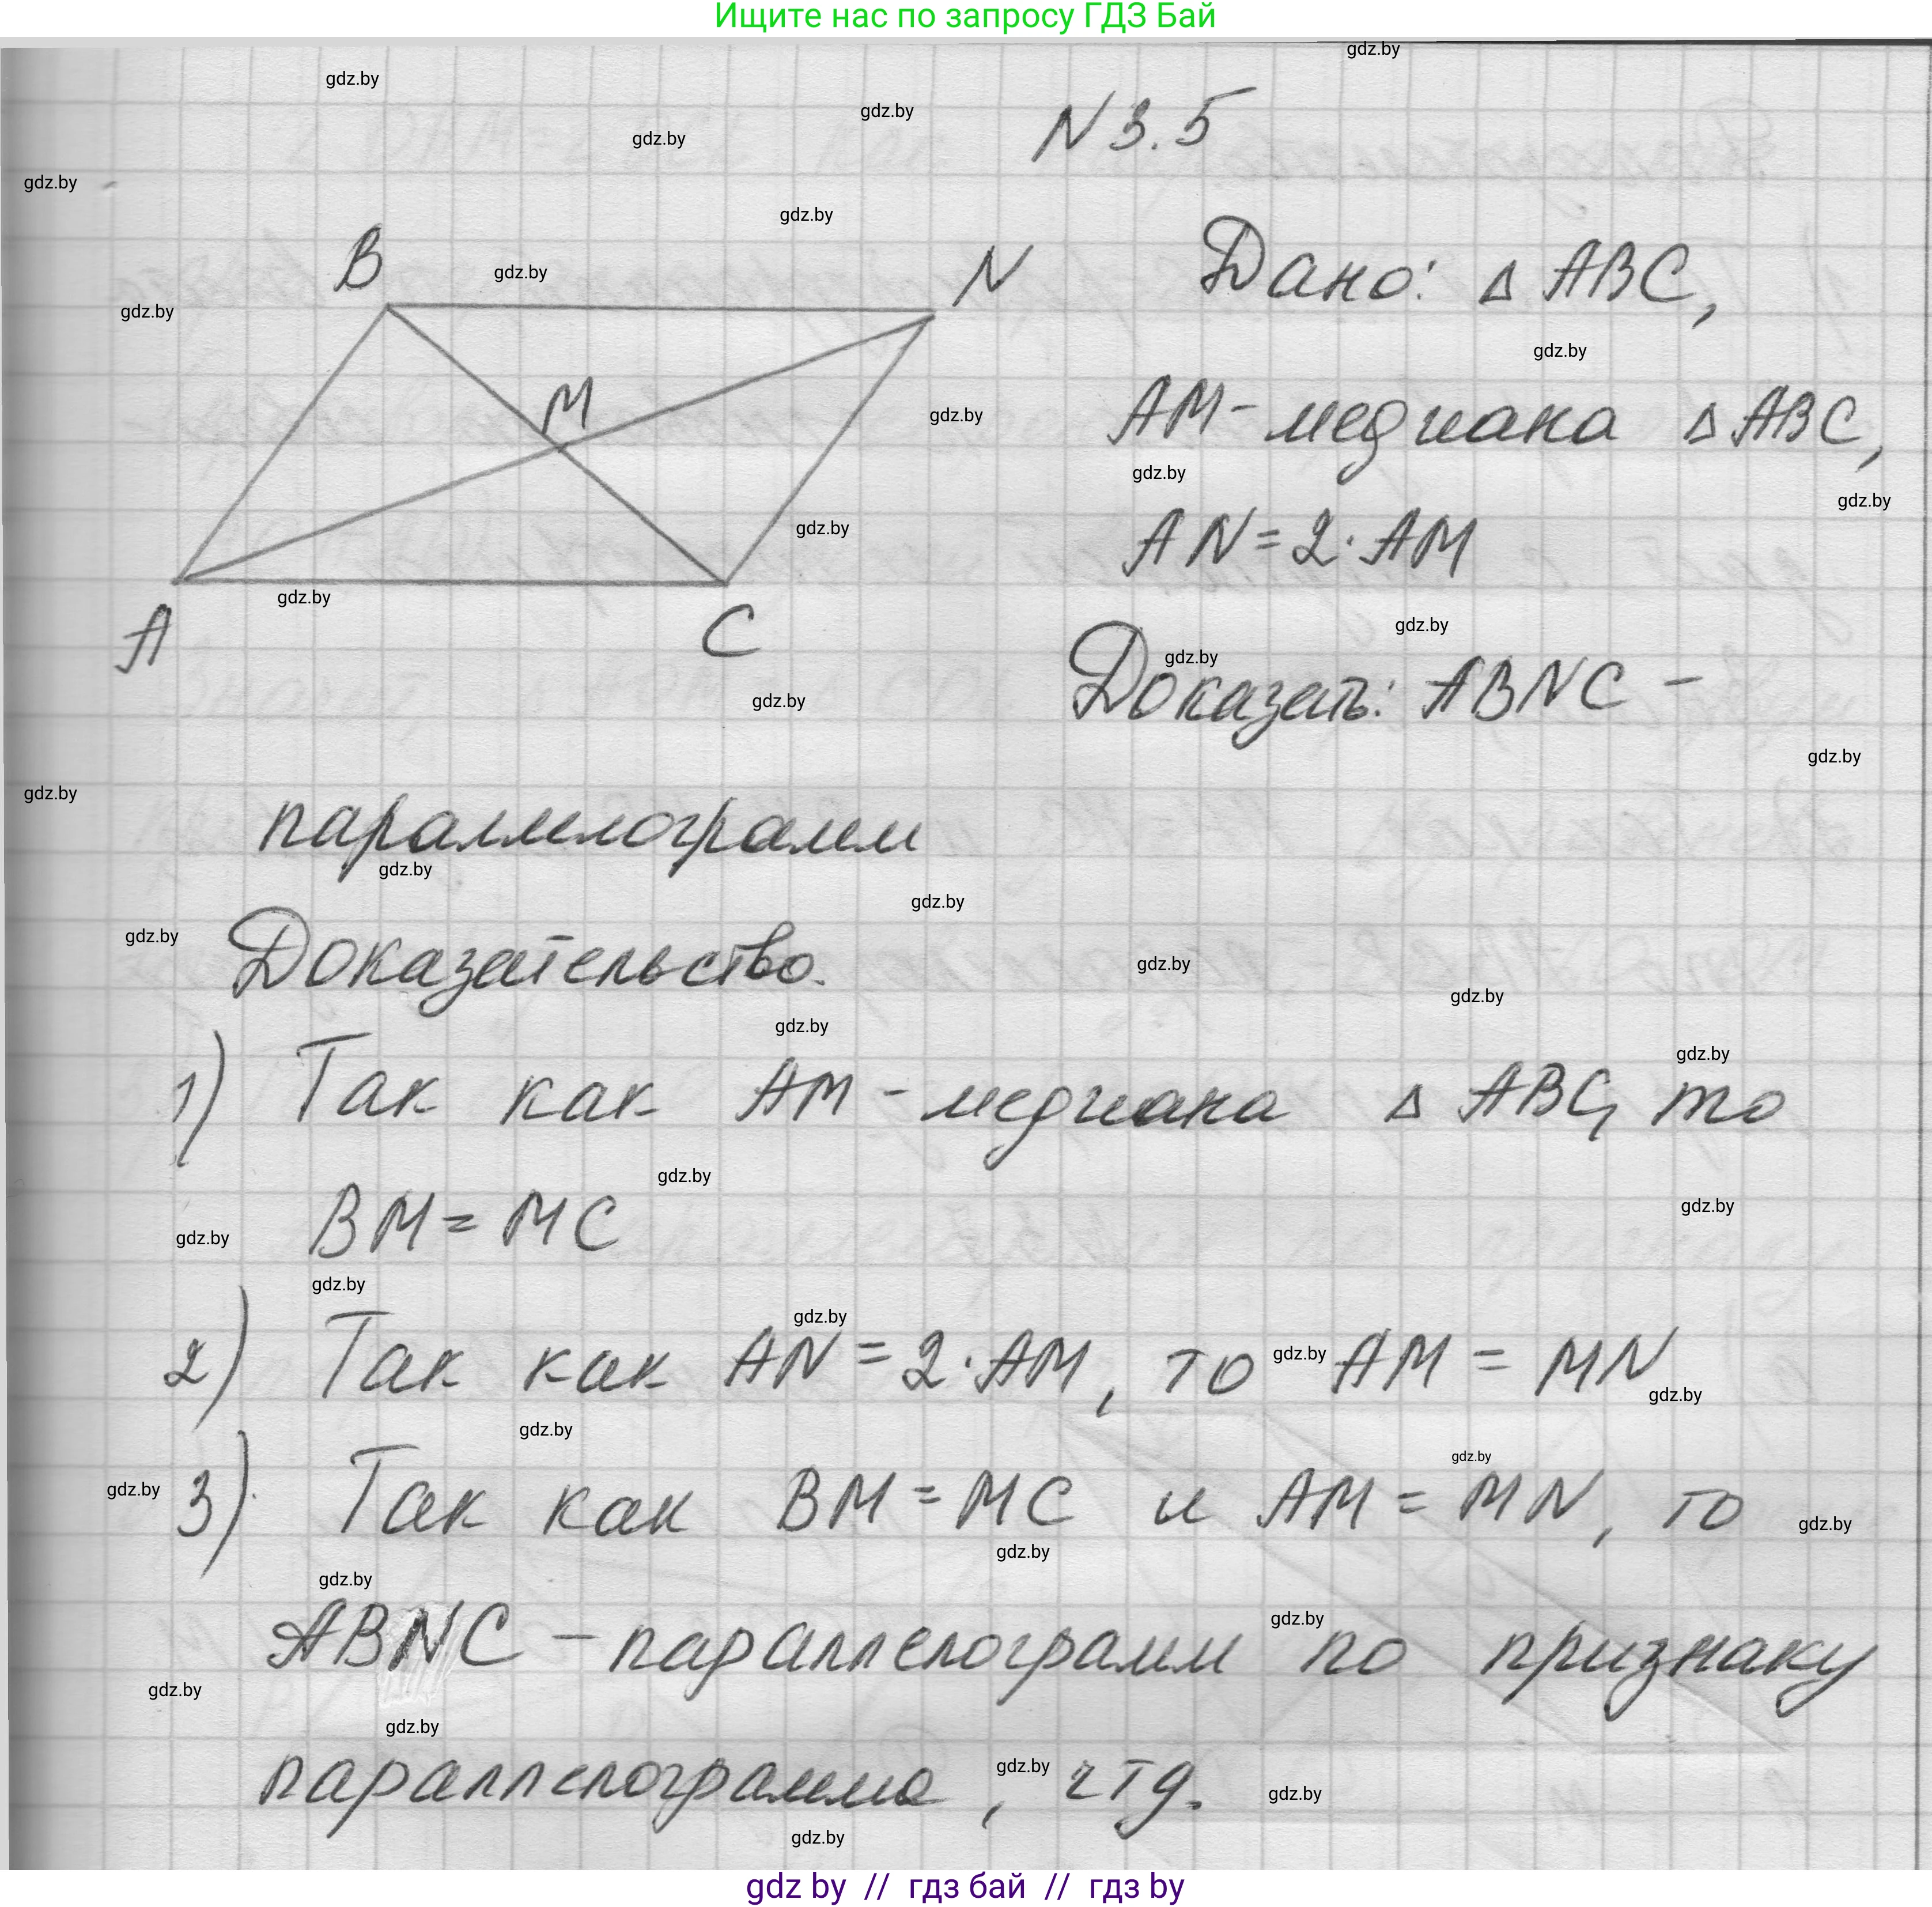 Ищите нас по запросу ГДЗ Бай
N 3.5
B
N
M
A
C
Дано: Δ ABC,
AM - медиана Δ ABC,
AN = 2 · AM
Доказать: ABNC -
параллелограмм
Доказательство.
1) Так как AM - медиана Δ ABC, то
BM = MC
2) Так как AN = 2 · AM, то AM = MN
3) Так как BM = MC и AM = MN, то
ABNC - параллелограмм по признаку
параллелограмма, чтд.
gdz by // гдз бай // гдз by